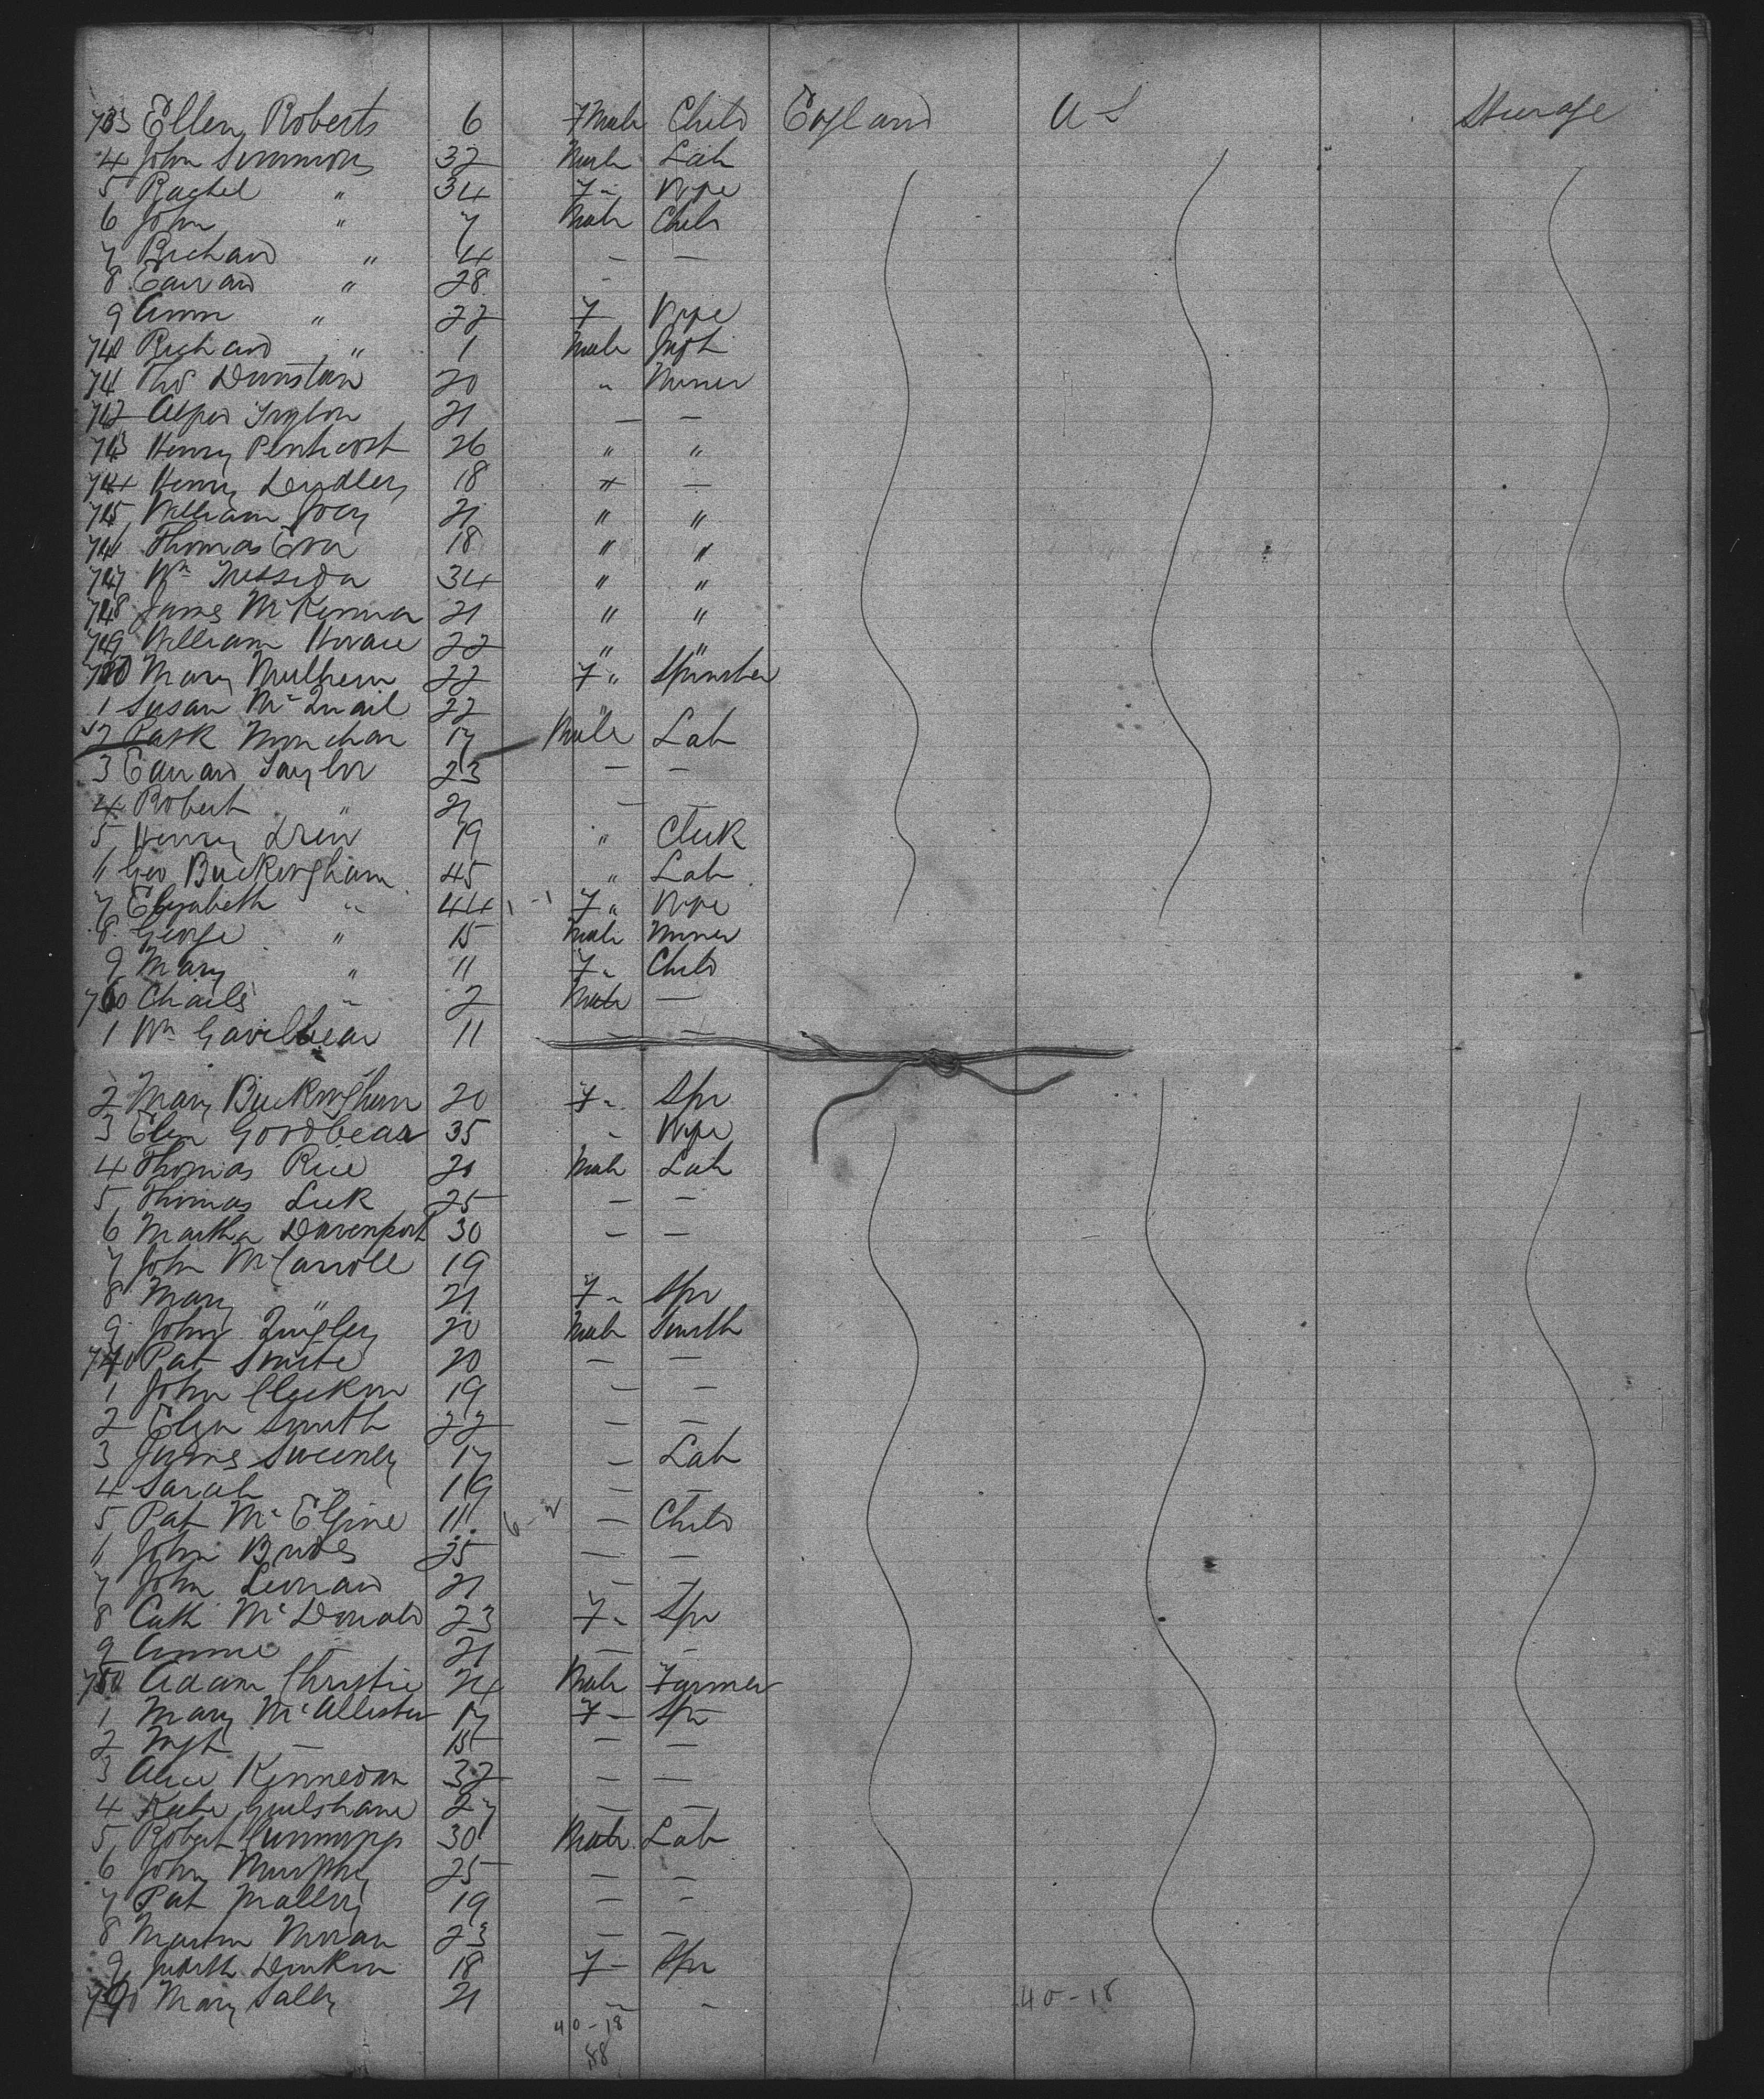 733 Ellen Roberts 6 Fmale Child England U S Steerage
4 John Simmons 32 Male Lab
5 Rachel " 34 F " Wife
6 John " 7 Male Child
7 Richard " 4 — —
8 Edward " 28 -
9 Ann " 22 F Wife
740 Richard " 1 Male Inft
741 Thos Dunstan 20 " Miner
742 Alfred 21 — —
743 Henry Penticost 26 " "
744 Henry 18 " —
745 William Joey 21 " "
746 Thomas Eva 18 " "
747 Wm 34 " "
748 James McKenna 21 " "
749 William Horace 22 " "
750 Mary Mulhern 22 F " Spinster
1 Susan McQuail 22 "
2 17 Male Lab
3 Edward Taylor 23 — —
4 Robert " 21 — —
5 Henry Drew 19 " Clerk
6 Geo Buckingham 45 " Lab
7 Elizabeth " 44 1 - 1 F " Wife
8 George " 15 Male Miner
9 Mary " 11 F " Child
760 Charles " 2 Male —
1 Wm 11 — —
2 Mary Buckingham 20 F " Spr
3 Goodbear 35 " Wife
4 Thomas Rice 20 Male Lab
5 Thomas 25 — —
6 Martha Davenport 30 — —
7 John McCarroll 19
8 Mary " 21 F " Spr
9 John Quigley 20 Male Smith
770 Pat 20 — —
1 John 19 — —
2 Smith 22 — —
3 James Sweeney 17 — Lab
4 Sarah " 19 — —
5 Pat 11 — Child
6 John 25 — —
7 John Leonard 21 — —
8 Cath McDonald 23 F " Spr
9 Annie — 21 — —
780 Adam Christie 24 Male Farmer
1 Mary McAllister 17 F — Spr
2 Mgt — 15 — —
3 Alice 32 — —
4 Kate 27 — —
5 Robert Cummings 30 Male Lab
6 John Murphy 25 — —
7 Pat Malloy 19 — —
8 Martin Moran 23 — —
9 Judith Durkin 18 F — Spr
790 Mary Lally 21 — -
40-18 40-18
58